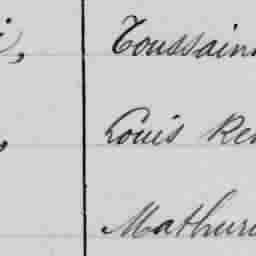 i, Toussain
, Louis Ren
Mathuri